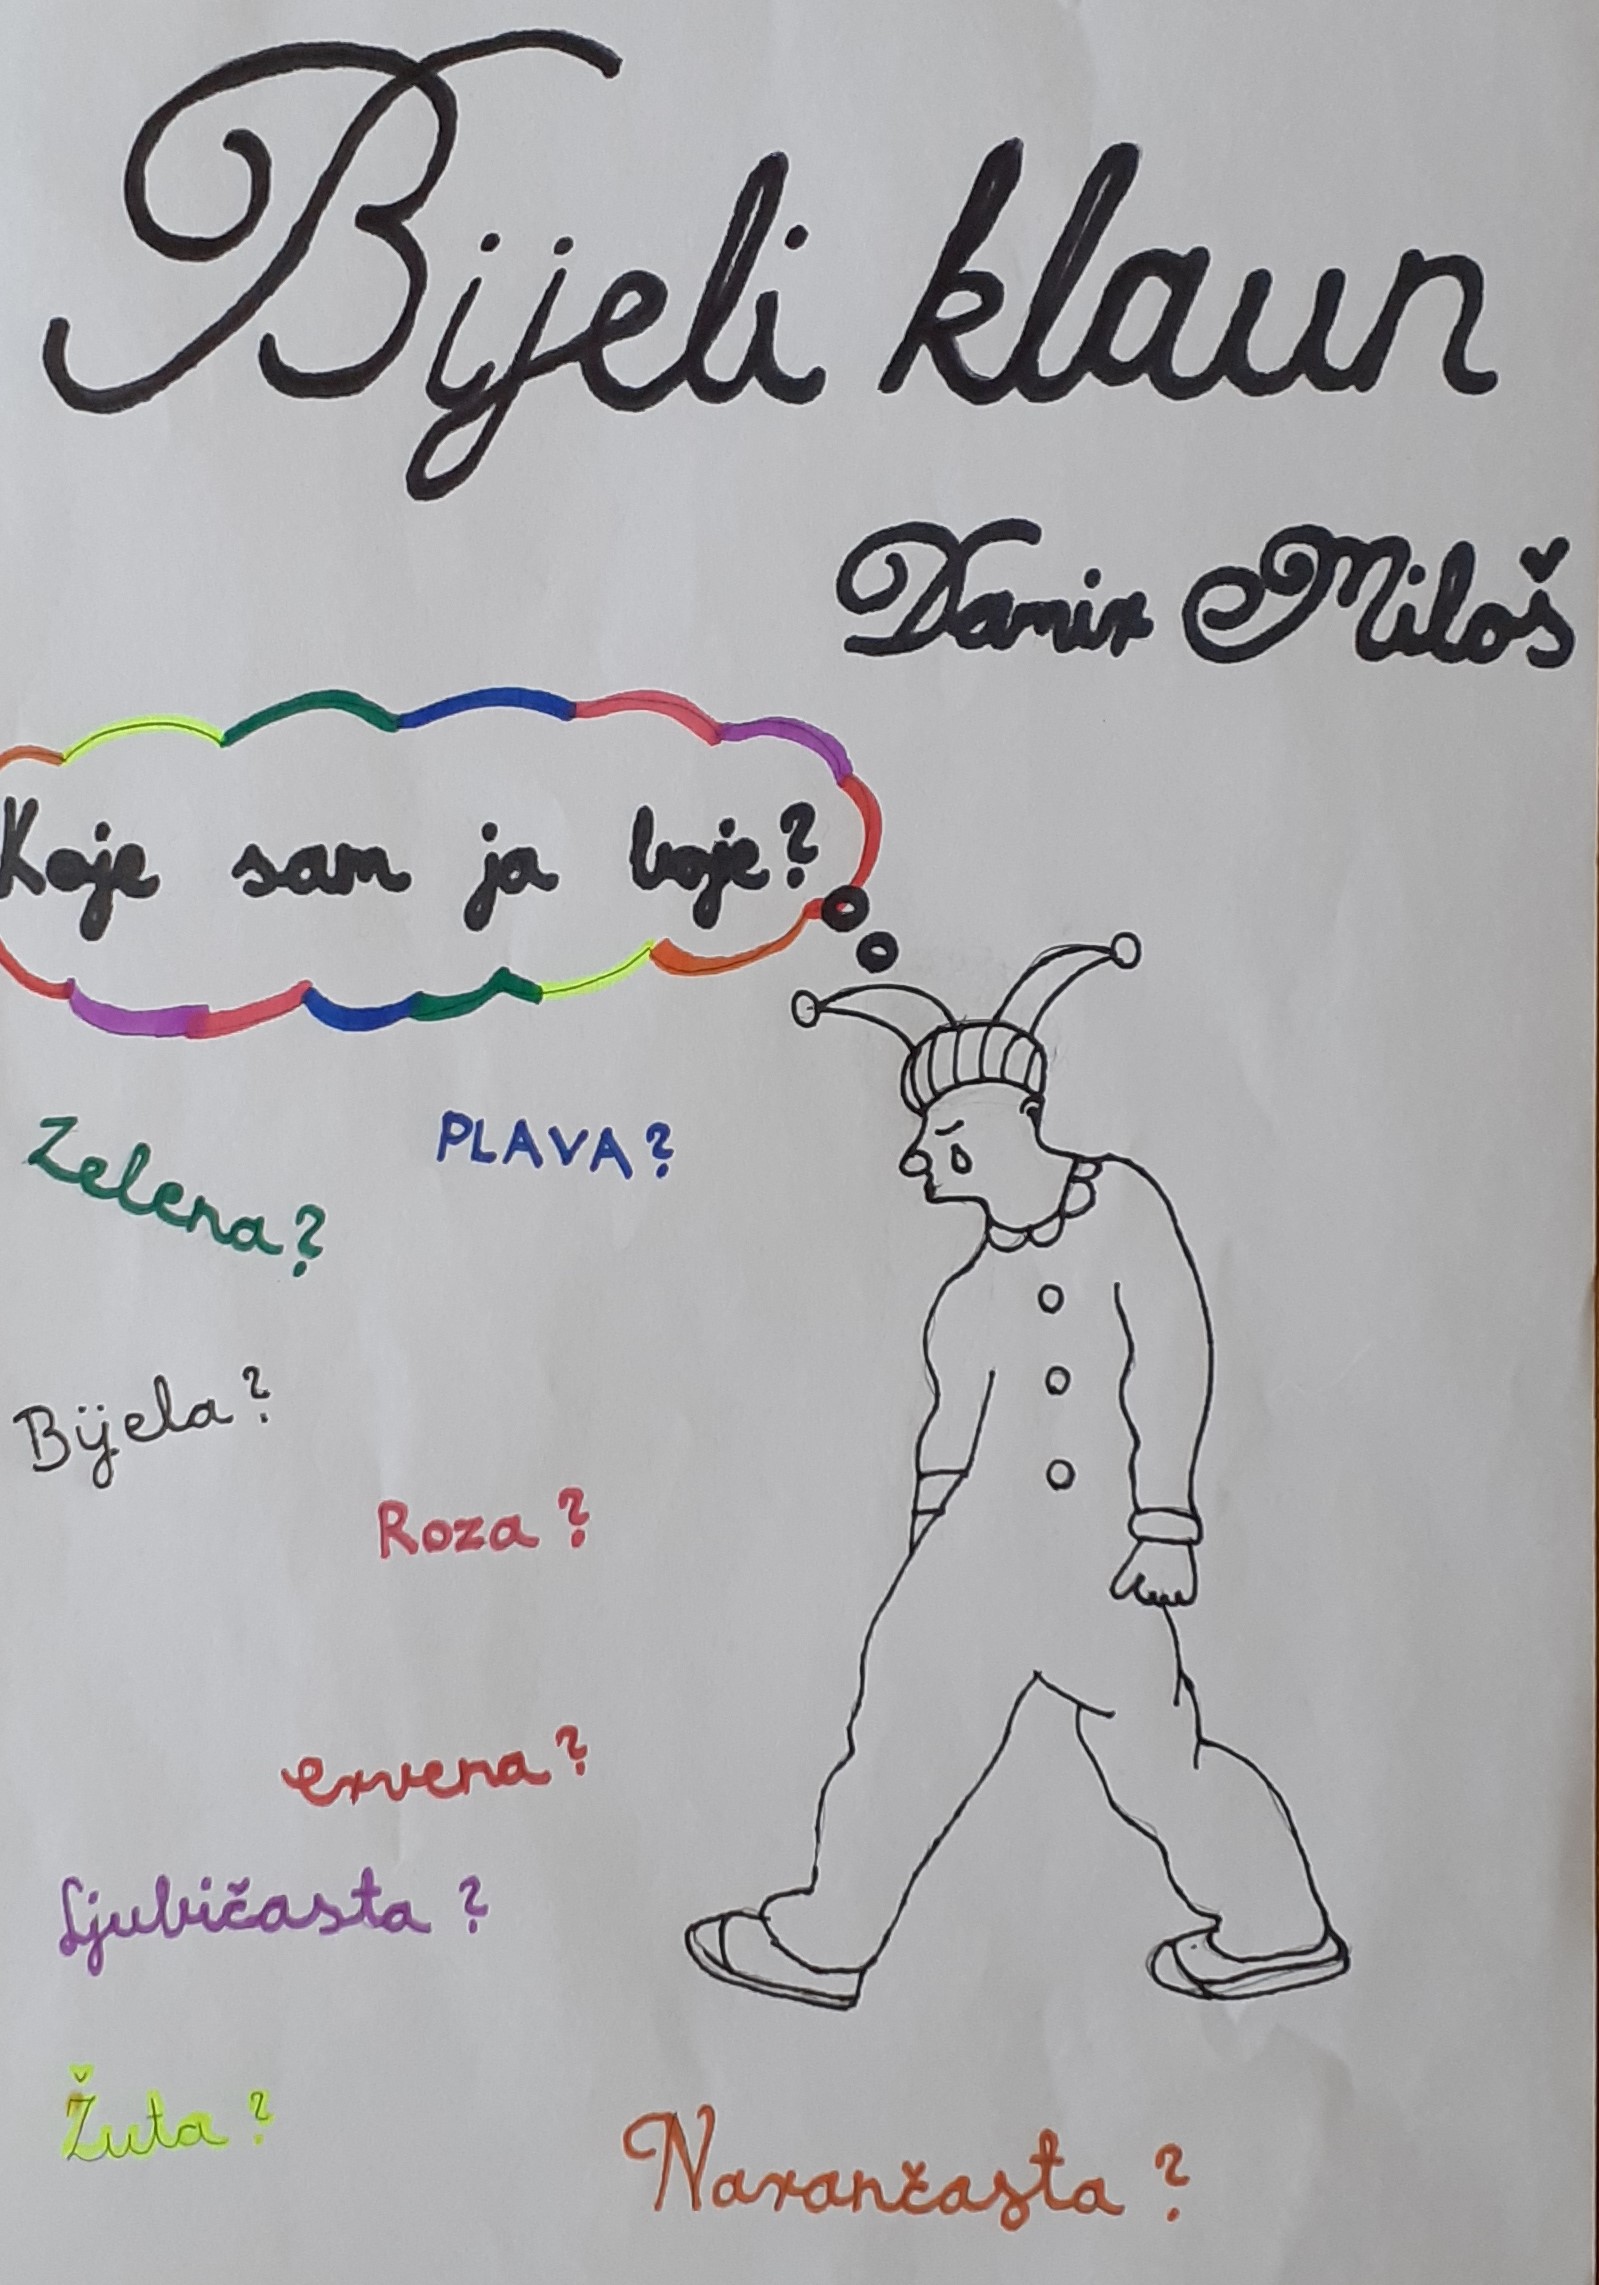 Bijeli klaun
Damir Miloš
Koje sam ja boje?
Zelena?
PLAVA?
Bijela?
Roza?
crvena?
Ljubičasta?
Žuta?
Narančasta?